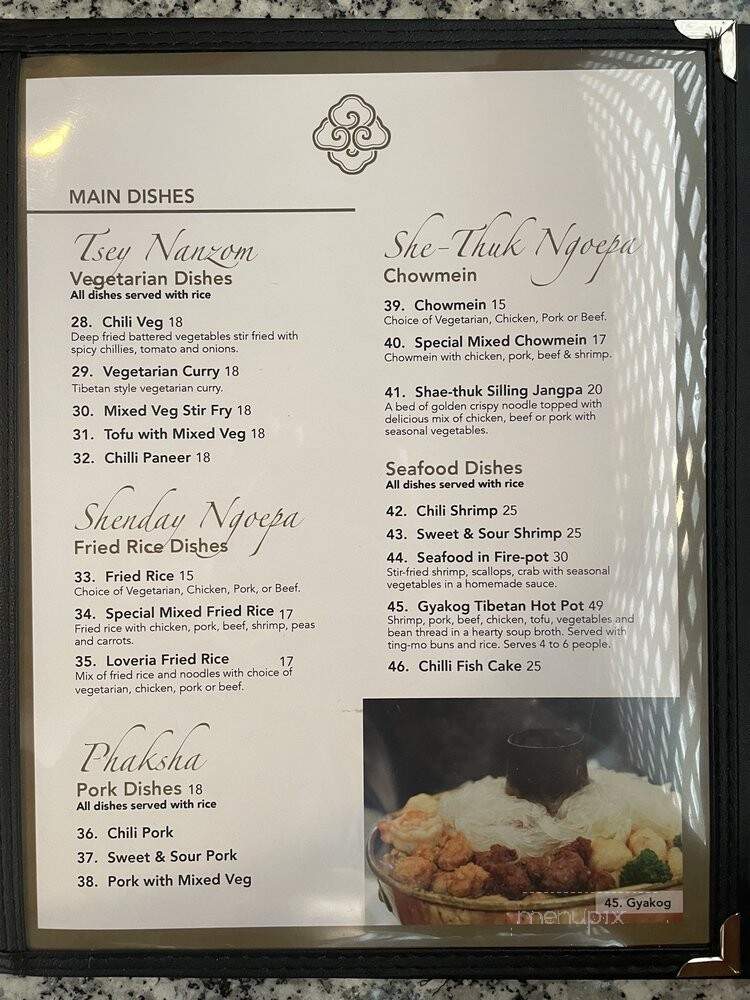 MAIN DISHES
Tsey Nanzom
Vegetarian Dishes
All dishes served with rice
28. Chili Veg 18
Deep fried battered vegetables stir fried with
spicy chillies, tomato and onions.
29. Vegetarian Curry 18
Tibetan style vegetarian curry.
30. Mixed Veg Stir Fry 18
31. Tofu with Mixed Veg 18
32. Chilli Paneer 18
Shenday Ngoepa
Fried Rice Dishes
33. Fried Rice 15
Choice of Vegetarian, Chicken, Pork, or Beef.
34. Special Mixed Fried Rice 17
Fried rice with chicken, pork, beef, shrimp, peas
and carrots.
35. Loveria Fried Rice 17
Mix of fried rice and noodles with choice of
vegetarian, chicken, pork or beef.
Phaksha
Pork Dishes 18
All dishes served with rice
36. Chili Pork
37. Sweet & Sour Pork
38. Pork with Mixed Veg
She-Thuk Ngoepa
Chowmein
39. Chowmein 15
Choice of Vegetarian, Chicken, Pork or Beef.
40. Special Mixed Chowmein 17
Chowmein with chicken, pork, beef & shrimp.
41. Shae-thuk Silling Jangpa 20
A bed of golden crispy noodle topped with
delicious mix of chicken, beef or pork with
seasonal vegetables.
Seafood Dishes
All dishes served with rice
42. Chili Shrimp 25
43. Sweet & Sour Shrimp 25
44. Seafood in Fire-pot 30
Stir-fried shrimp, scallops, crab with seasonal
vegetables in a homemade sauce.
45. Gyakog Tibetan Hot Pot 49
Shrimp, pork, beef, chicken, tofu, vegetables and
bean thread in a hearty soup broth. Served with
ting-mo buns and rice. Serves 4 to 6 people.
46. Chilli Fish Cake 25
45. Gyakog
menupix